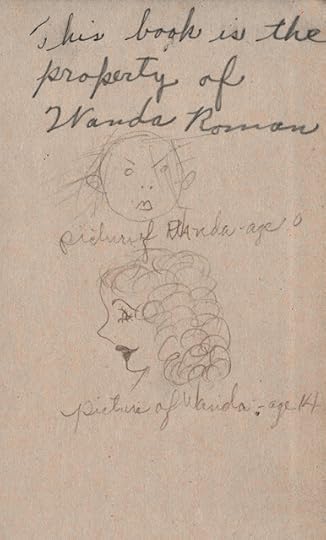 This book is the
property of
Wanda Roman
picture of Wanda - age 0
picture of Wanda - age 14